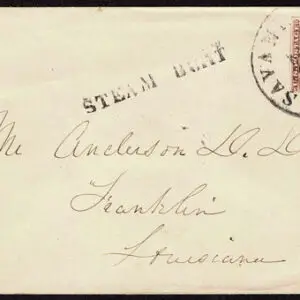 STEAM BOAT
SAVAN
Mr Anderson D. D
Franklin
Louisiana